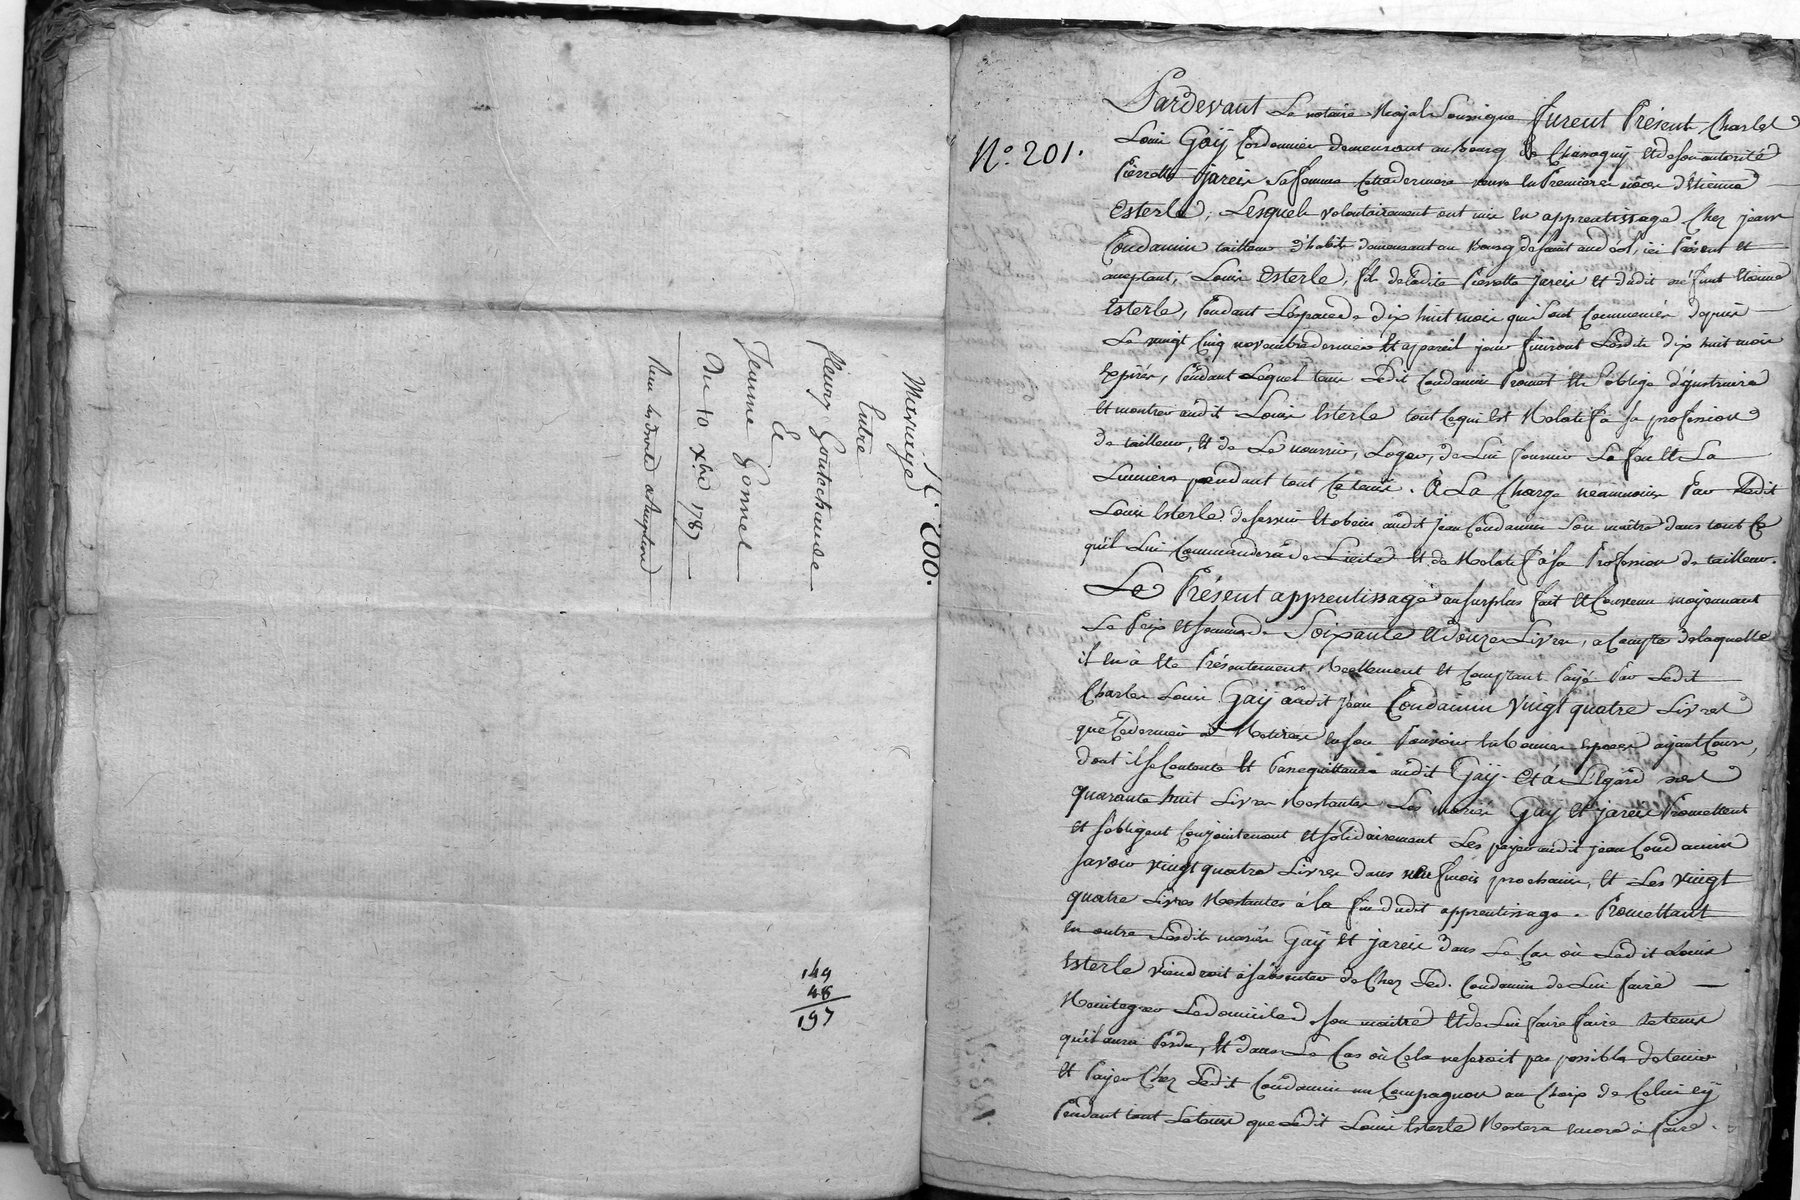 N.° 200.
Mariage
Entre
fleury Goutechaude
&
Jeanne Gonnel
Du 10 xbre 1787
149
48
197
N.° 201.
Pardevant Le notaire Royal Soussigné furent Présent Charles
Louis Gaÿ Cordonnier demeurant au bourg de Chassagny et de son autorité
Pierrette Jareir sa femme cette derniere veuve en Premieres nôces d'Etienne
Esterle, Lesquels volontairement ont mis en apprentissage Chez jean
Condamin tailleur d'habits demeurant au Bourg de saint andéol, ici Présent et
acceptant, Louis Esterle, fils de ladite Pierrette Jareir et dudit défunt Etienne
Esterle, Pendant L'espace de dix huit mois qui sont Commencés depuis
Le vingt Cinq novembre dernier et apareil jour finiront Lesdits dix huit mois
Expirés, Pendant Lequel tems Ledit Condamin Promet et s'oblige d'ynstruire
et montrer audit Louis Esterle tout ce qui est Relatif à sa profession
de tailleur, et de Le nourrir, Loger, de Lui fournir Le feu et La
Lumiere pendant tout ce tems. à La Charge néanmoins Par Ledit
Louis Esterle de servir et obeir audit jean Condamin son maître dans tout Ce
qu'il Lui Commandera de Licite et de Relatif à sa Profession de tailleur.
Le Présent apprentissage au surplus fait et Convenu moyennant
Le Prix et somme de Soixante et douze Livres, a Compte de laquelle
il en à été Présentement Réellement et Comptant Payé Par Ledit
Charles Louis Gaÿ audit jean Condamin Vingt quatre Livres
que Ce dernier à Retirées en son Pouvoir en bonnes especes ayant Cours,
dont il se Contente et Passe quittance audit Gaÿ. Et à L'égard des
quarante huit Livres Restantes Les mariés Gaÿ et jareir Promettent
et s'obligent Conjointement et solidairement Les payer audit jean Condamin
savoir vingt quatre Livres dans neuf mois prochains, et Les vingt
quatre Livres Restantes à la fin dudit apprentissage. Promettant
en outre Lesdits mariés Gaÿ et jareir dans Le Cas où Ledit Louis
Esterle viendroit à s'absenter de Chez Led. Condamin de Lui faire
Reintegrer Le domicile de son maitre et de Lui faire faire Le tems
qu'il aura Perdu, et dans Le Cas où Cela ne seroit pas possible de tenir
et Payer Chez Ledit Condamin un Compagnon au Choix de Celui cÿ
Pendant tout Le tems que Ledit Louis Esterle Restera encore à faire.